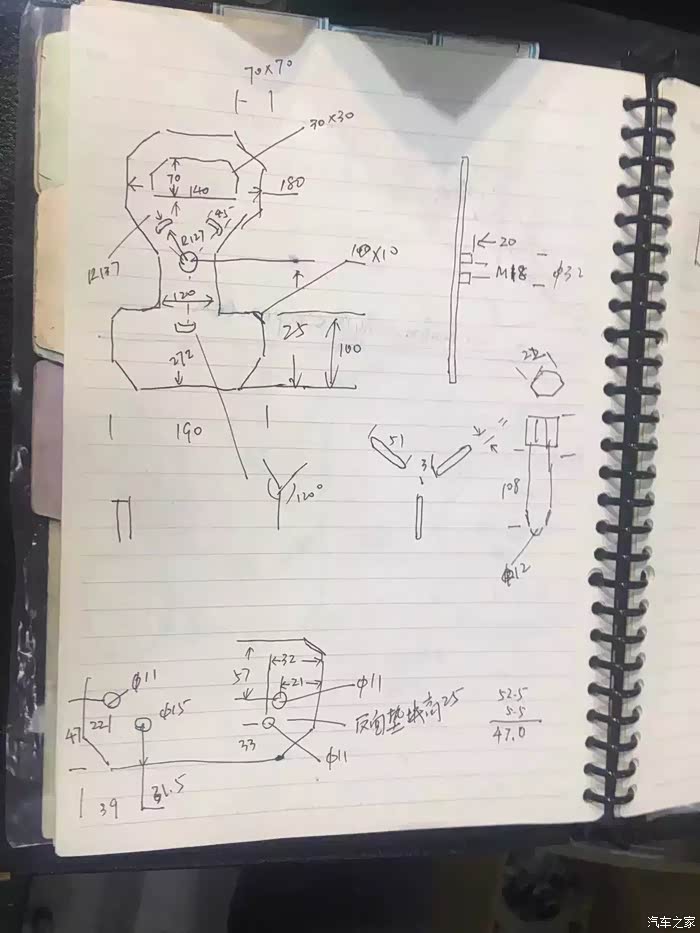 70×70
30×30
70
140
180
45
R127
R137
100×10
120
25
100
272
190
120°
20
M18
φ32
28
51
31
108
φ12
57
32
21
φ11
φ11
φ15
22
47
33
反面垫块高25
φ11
39
31.5
52.5
5.5
47.0
汽车之家